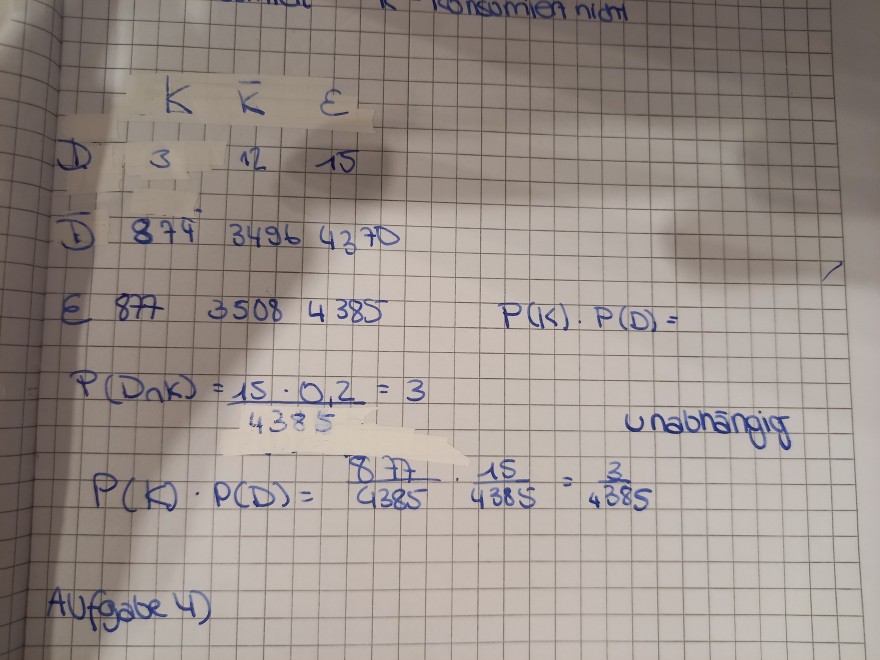 K - Konsumieren nicht
K K̅ Ɛ
D 3 12 15
D̅ 874 3496 4370
Ɛ 877 3508 4385
P(K) · P(D) =
P(D∩K) = 15 · 0,2 / 4385 = 3
unabhängig
P(K) · P(D) = 877/4385 · 15/4385 = 3/4385
Aufgabe 4)